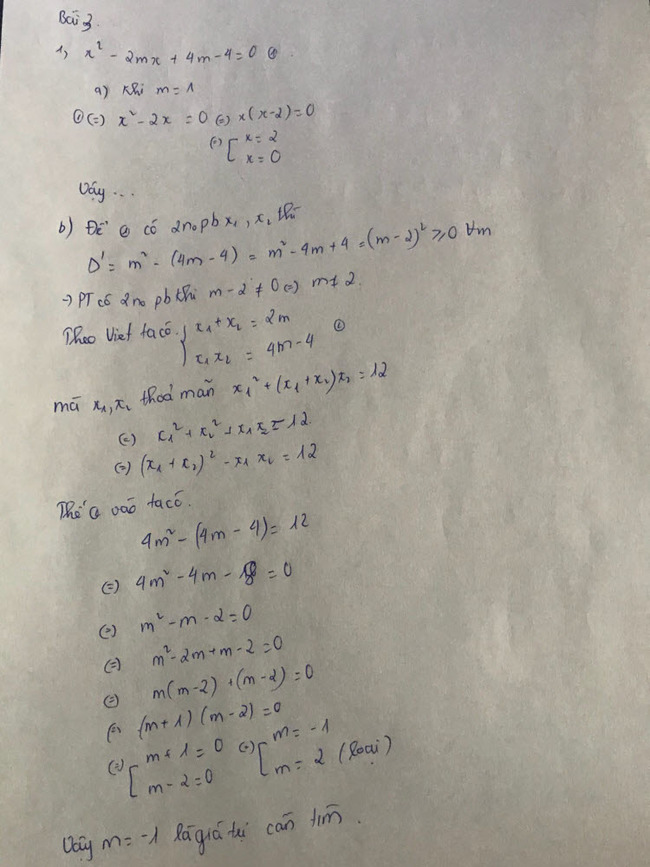 Bài 3.
1, x² - 2mx + 4m - 4 = 0 ①.
a) Khi m = 1
① (=) x² - 2x = 0 (=) x(x-2) = 0
(=) [ x = 2
x = 0
Vậy ...
b) Để ① có 2 no pb x₁, x₂ thì
Δ' = m² - (4m - 4) = m² - 4m + 4 = (m - 2)² ≥ 0 ∀m
-> PT có 2 no pb khi m - 2 ≠ 0 (=) m ≠ 2.
Theo Viet ta có. { x₁ + x₂ = 2m
x₁ x₂ = 4m - 4
mà x₁, x₂ thoả mãn x₁² + (x₁ + x₂)x₂ = 12
(=) x₁² + x₂² + x₁ x₂ = 12.
(=) (x₁ + x₂)² - x₁ x₂ = 12
Thế vào ta có.
4m² - (4m - 4) = 12
(=) 4m² - 4m - 8 = 0
(=) m² - m - 2 = 0
(=) m² - 2m + m - 2 = 0
(=) m(m - 2) + (m - 2) = 0
(=) (m + 1) (m - 2) = 0
(=) [ m + 1 = 0 (=) [ m = -1
m - 2 = 0 m = 2 (loại)
Vậy m = -1 là giá trị cần tìm.